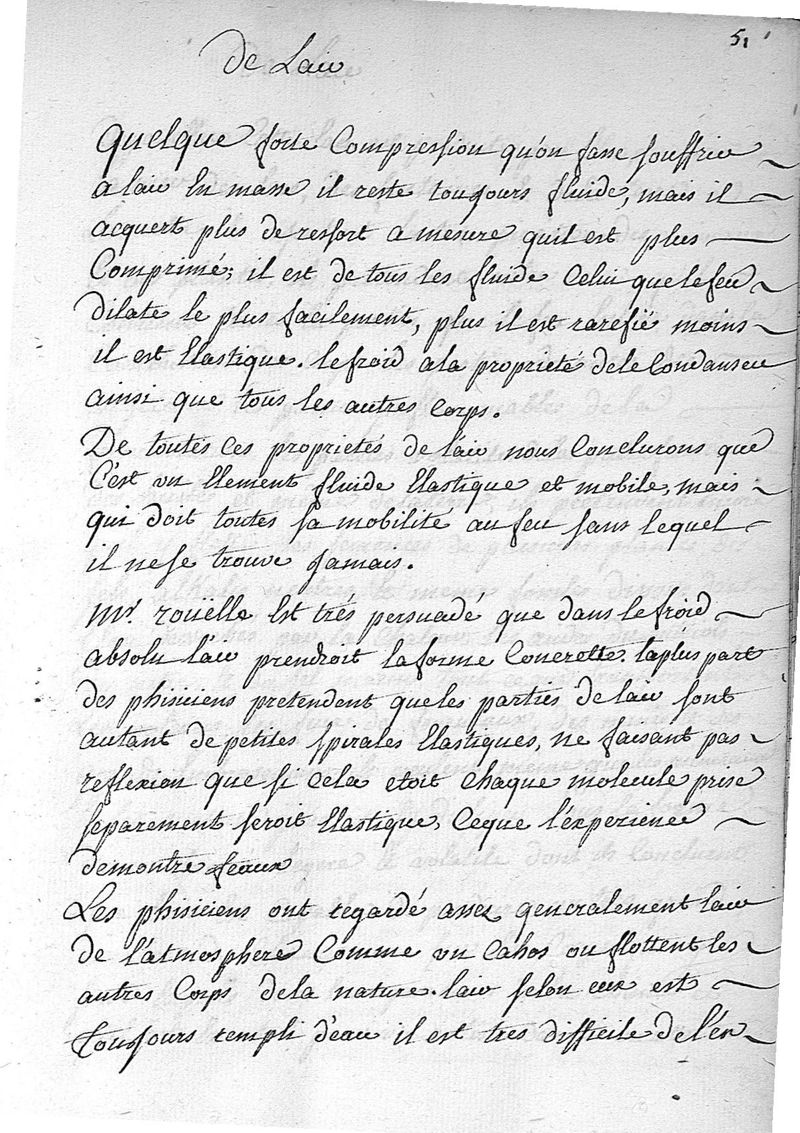 51
de Lair
Quelque forte Compression qu'on fasse souffrir
a lair En masse il reste toujours fluide, mais il
acquert plus de ressort a mesure quil est plus
Comprimé; il est de tous les fluide Celui que le feu
dilate le plus facilement, plus il est rarefié moins
il est Elastique. le froid a la proprieté de le Condanser
ainsi que tous les autres Corps.
De toutes ces proprietés de l'air nous Conclurons que
C'est un Element fluide Elastique et mobile, mais
qui doit toutes sa mobilité au feu sans lequel
il ne se trouve jamais.
Mr. rouelle Est trés persuadé que dans le froid
absolu l'air prendroit la forme Concrette. la plus part
des phisiciens pretendent que les parties de lair sont
autant de petites spirales Elastiques, ne faisant pas
reflexion que si cela etoit chaque molecule prise
separement seroit Elastique, Ceque l'experience
demontre feaux
Les phisiciens ont regardé assez generalement lair
de l'atmosphere Comme un Cahos ou flottent les
autres Corps de la nature. lair selon eux est
Toujours rempli d'eau il est tres difficile de l'en